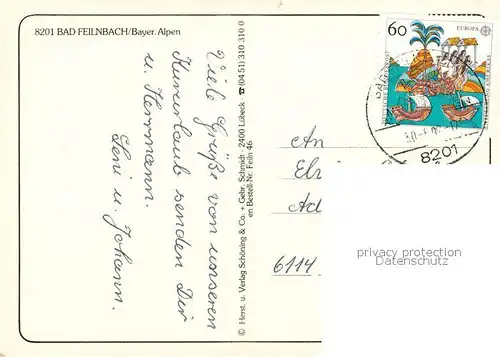 8201 BAD FEILNBACH/Bayer. Alpen
Viele Grüße von unseren
Kururlaub senden Dir
u. Herrmann.
Leni u. Johann.
© Herst. u. Verlag Schöning & Co. + Gebr. Schmidt · 2400 Lübeck · ☎ (04 51) 310 310 0
en Bestell-Nr. Feiln 46
60
EUROPA
8201
An
Ad
6114
privacy protection
Datenschutz